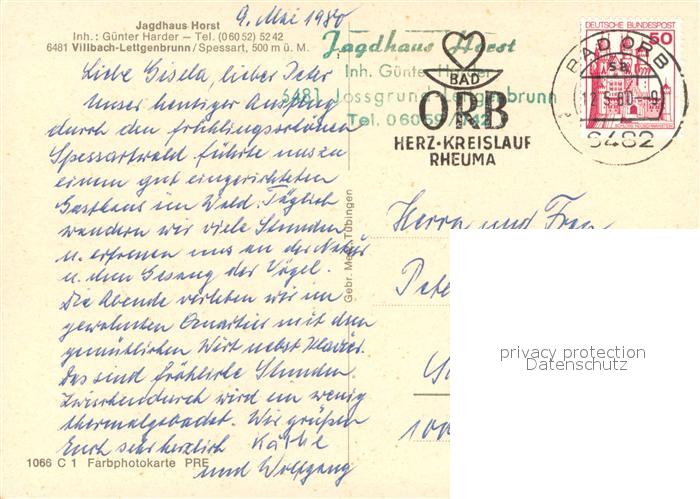 9. Mai 1980
Jagdhaus Horst
Inh.: Günter Harder – Tel. (06052) 5242
6481 Villbach-Lettgenbrunn / Spessart, 500 m ü. M.
Liebe Gisela, lieber Peter
Unser heutiger Ausflug
durch den frühlingsschönen
Spessartwald führte uns zu
einem gut eingerichteten
Gasthaus im Wald. Täglich
wandern wir viele Stunden
u. erfreuen uns an der Natur
u. dem Gesang der Vögel.
Die Abende verleben wir im
gewohnten Quartier mit dem
gemütlichen Wirt nebst Klavier.
Das sind fröhliche Stunden.
Zwischendurch wird ein wenig
thermalgebadet. Wir grüßen
Euch sehr herzlich Käthe
und Wolfgang
1066 C 1 Farbphotokarte PRE
Gebr. Metz, Tübingen
Jagdhaus Horst
Inh. Günter Harder
6481 Jossgrund-Lettgenbrunn
Tel. 06059
BAD
ORB
HERZ·KREISLAUF
RHEUMA
DEUTSCHE BUNDESPOST
50
BAD ORB
sa
12.5.80.-9
6482
Herrn und Frau
Pete
100
privacy protection
Datenschutz